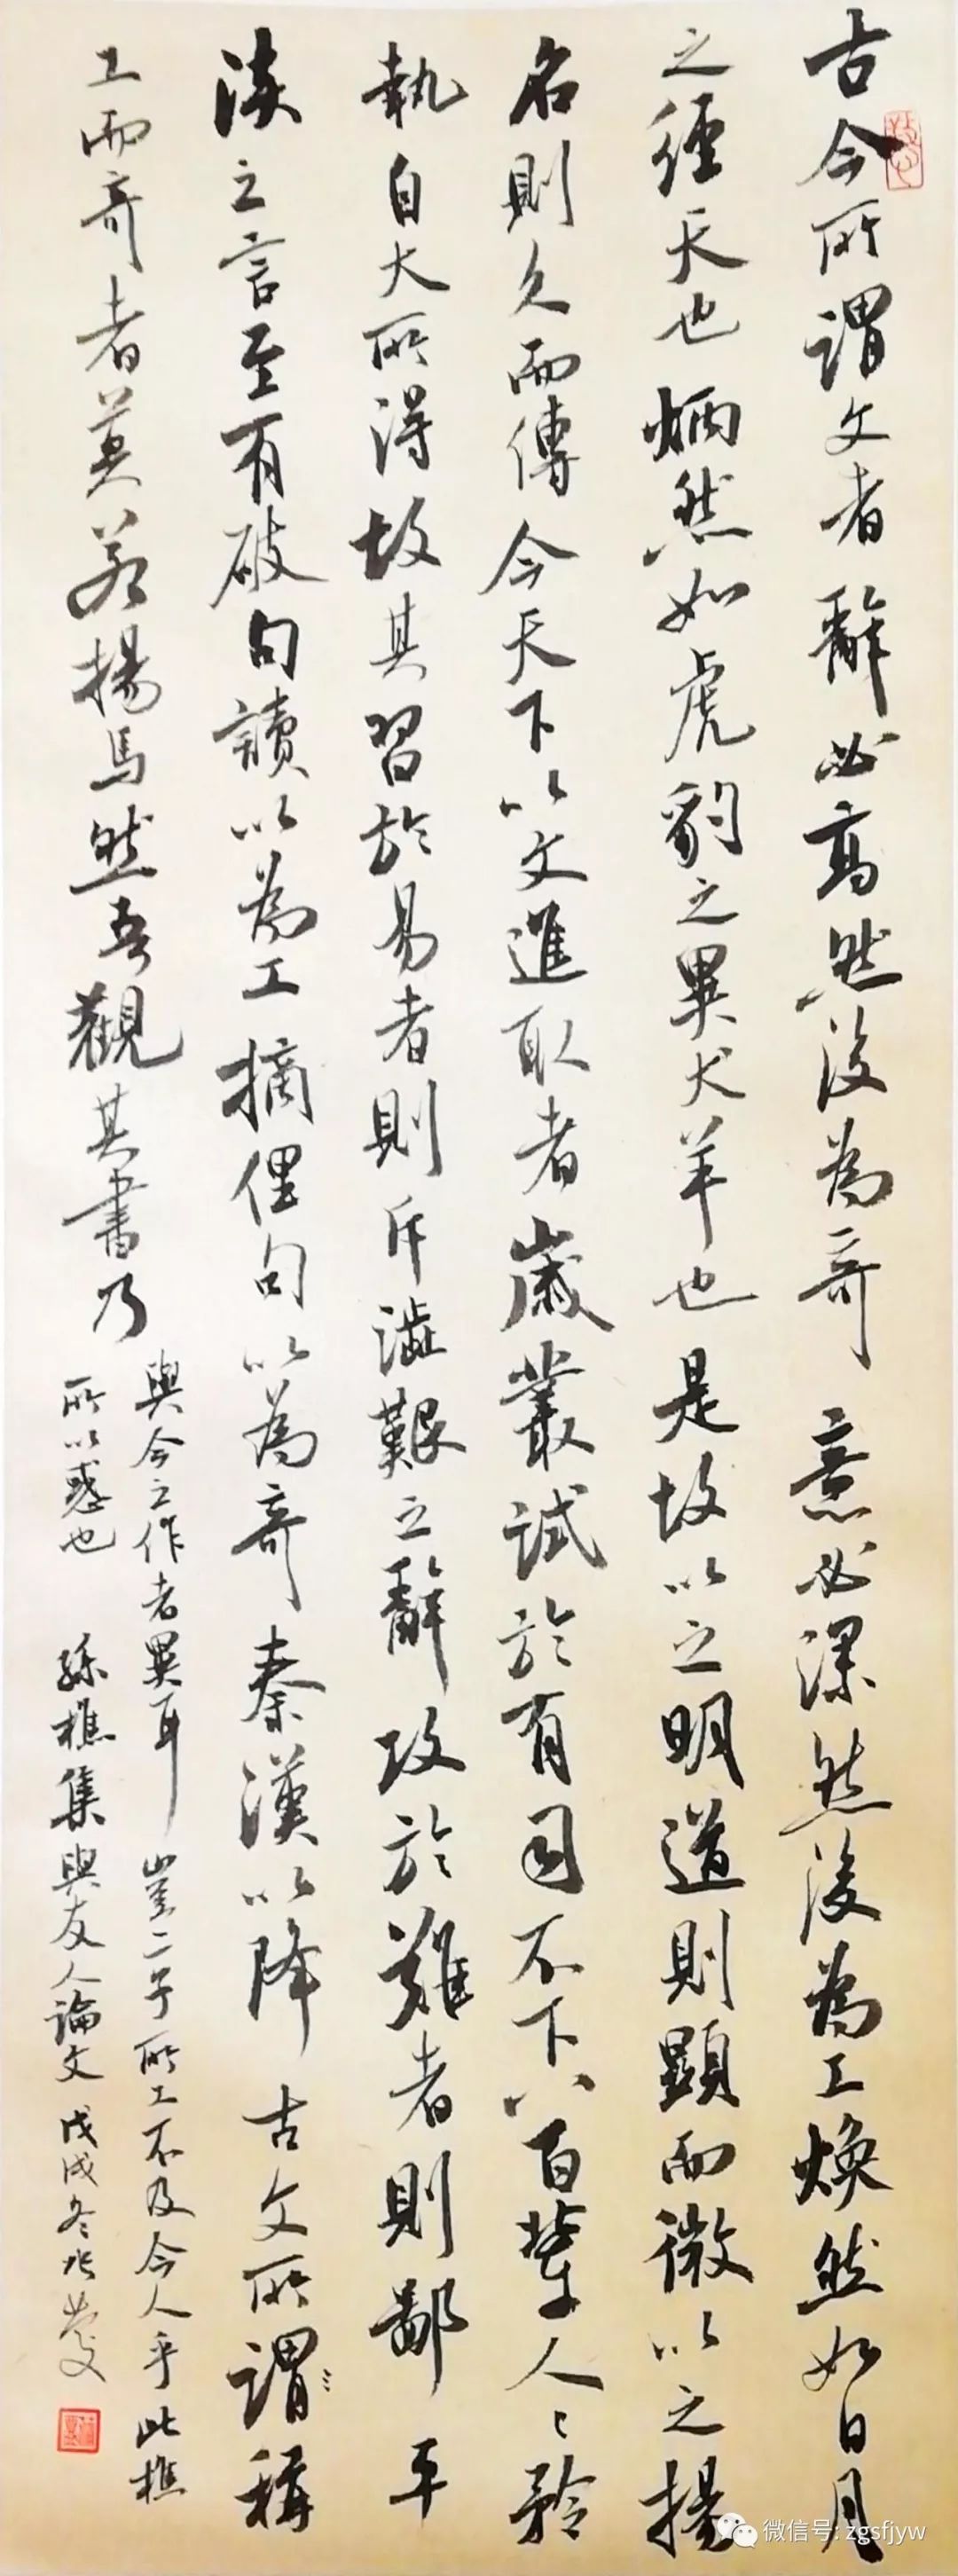 古今所謂文者辭必高然後為奇意必深然後為工煥然如日月
之經天也炳然如虎豹之異犬羊也是故以之明道則顯而微以之揚
名則久而傳今天下以文進取者歲叢試於有司不下八百輩人〻矜
執自大所得故其習於易者則斥澁艱之辭攻於難者則鄙平
淡之言至有破句讀以為工摘俚句以為奇秦漢以降古文所謂稱
工而奇者莫若揚馬然吾觀其書乃
與今之作者異耳豈二子所工不及今人乎此樵
所以惑也
孫樵集與友人論文戊戌冬
微信号: zgsfjyw